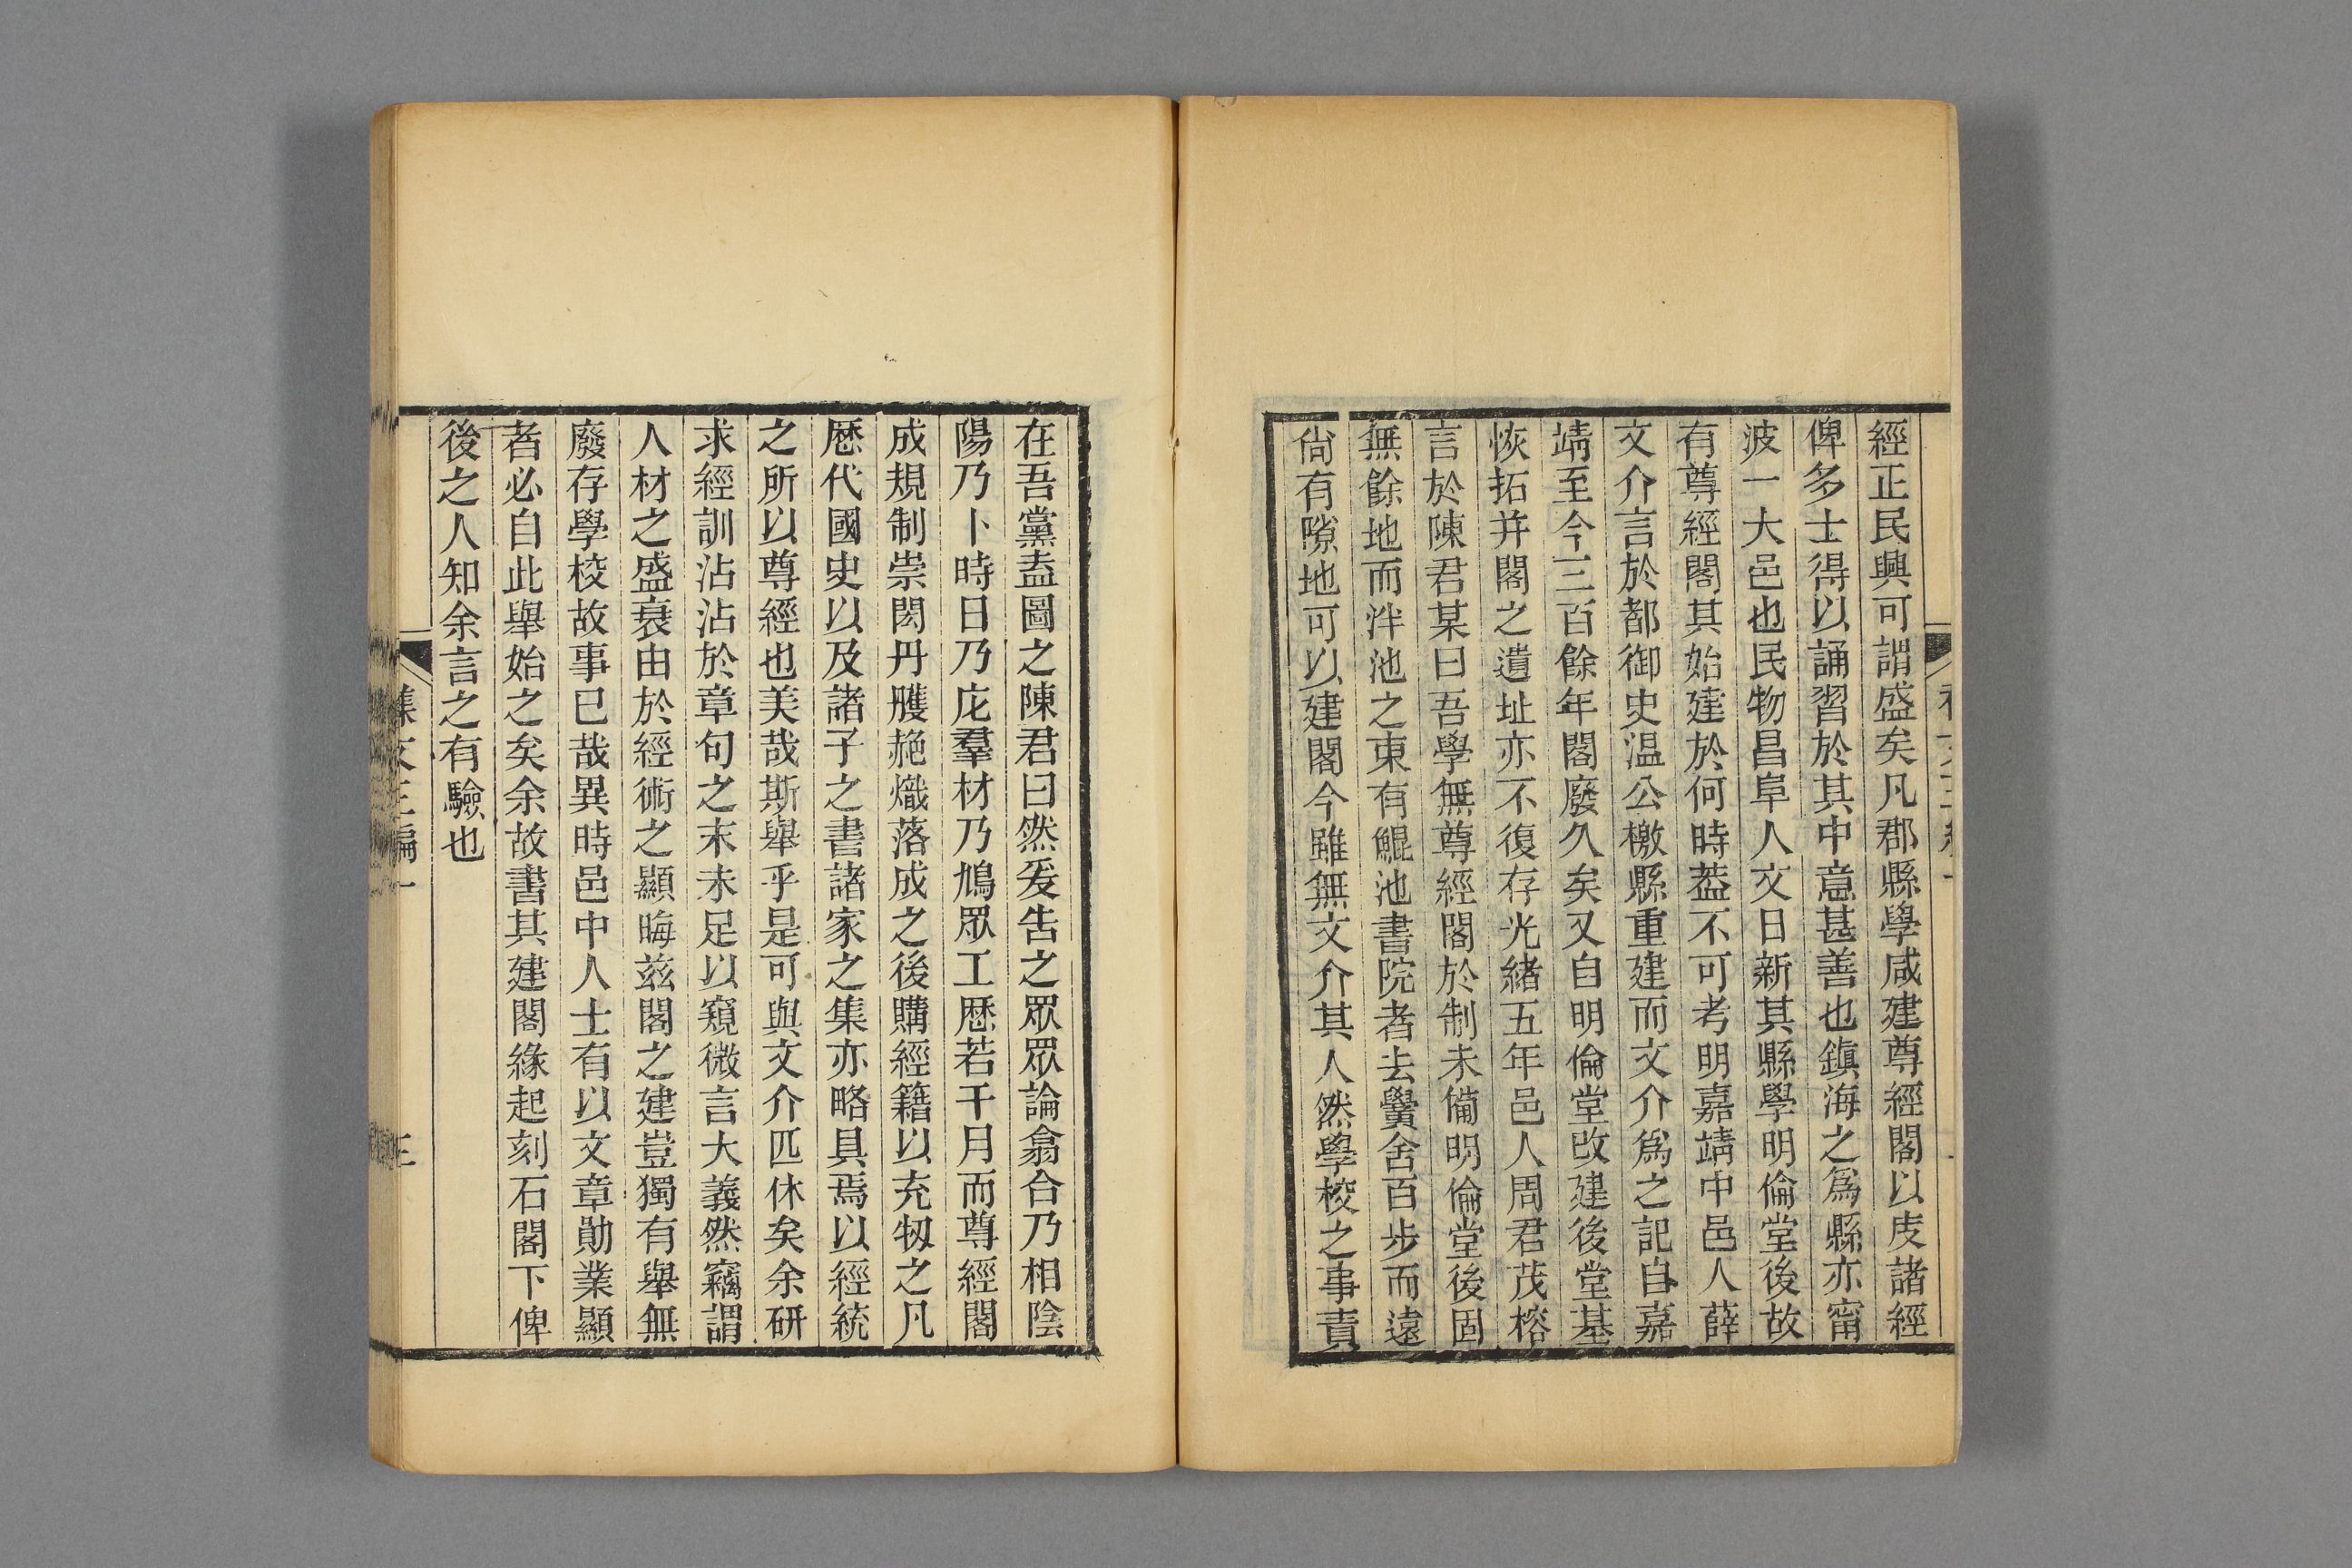 經正民興可謂盛矣凡郡縣學咸建尊經閣以庋諸經
俾多士得以誦習於其中意甚善也鎮海之爲縣亦甯
波一大邑也民物昌阜人文日新其縣學明倫堂後故
有尊經閣其始建於何時葢不可考明嘉靖中邑人薛
文介言於都御史温公檄縣重建而文介爲之記自嘉
靖至今三百餘年閣廢久矣又自明倫堂改建後堂基
恢拓并閣之遺址亦不復存光緒五年邑人周君茂榕
言於陳君某曰吾學無尊經閣於制未備明倫堂後固
無餘地而泮池之東有鯤池書院者去黌舍百步而遠
尙有隙地可以建閣今雖無文介其人然學校之事責
在吾黨盍圖之陳君曰然爰告之眾眾論翕合乃相陰
陽乃卜時日乃庀羣材乃鳩眾工歷若干月而尊經閣
成規制崇閎丹雘赩熾落成之後購經籍以充牣之凡
歷代國史以及諸子之書諸家之集亦略具焉以經統
之所以尊經也美哉斯舉乎是可與文介匹休矣余研
求經訓沾沾於章句之末未足以窺微言大義然竊謂
人材之盛衰由於經術之顯晦茲閣之建豈獨有舉無
廢存學校故事已哉異時邑中人士有以文章勛業顯
者必自此舉始之矣余故書其建閣緣起刻石閣下俾
後之人知余言之有驗也
集文三編一
三